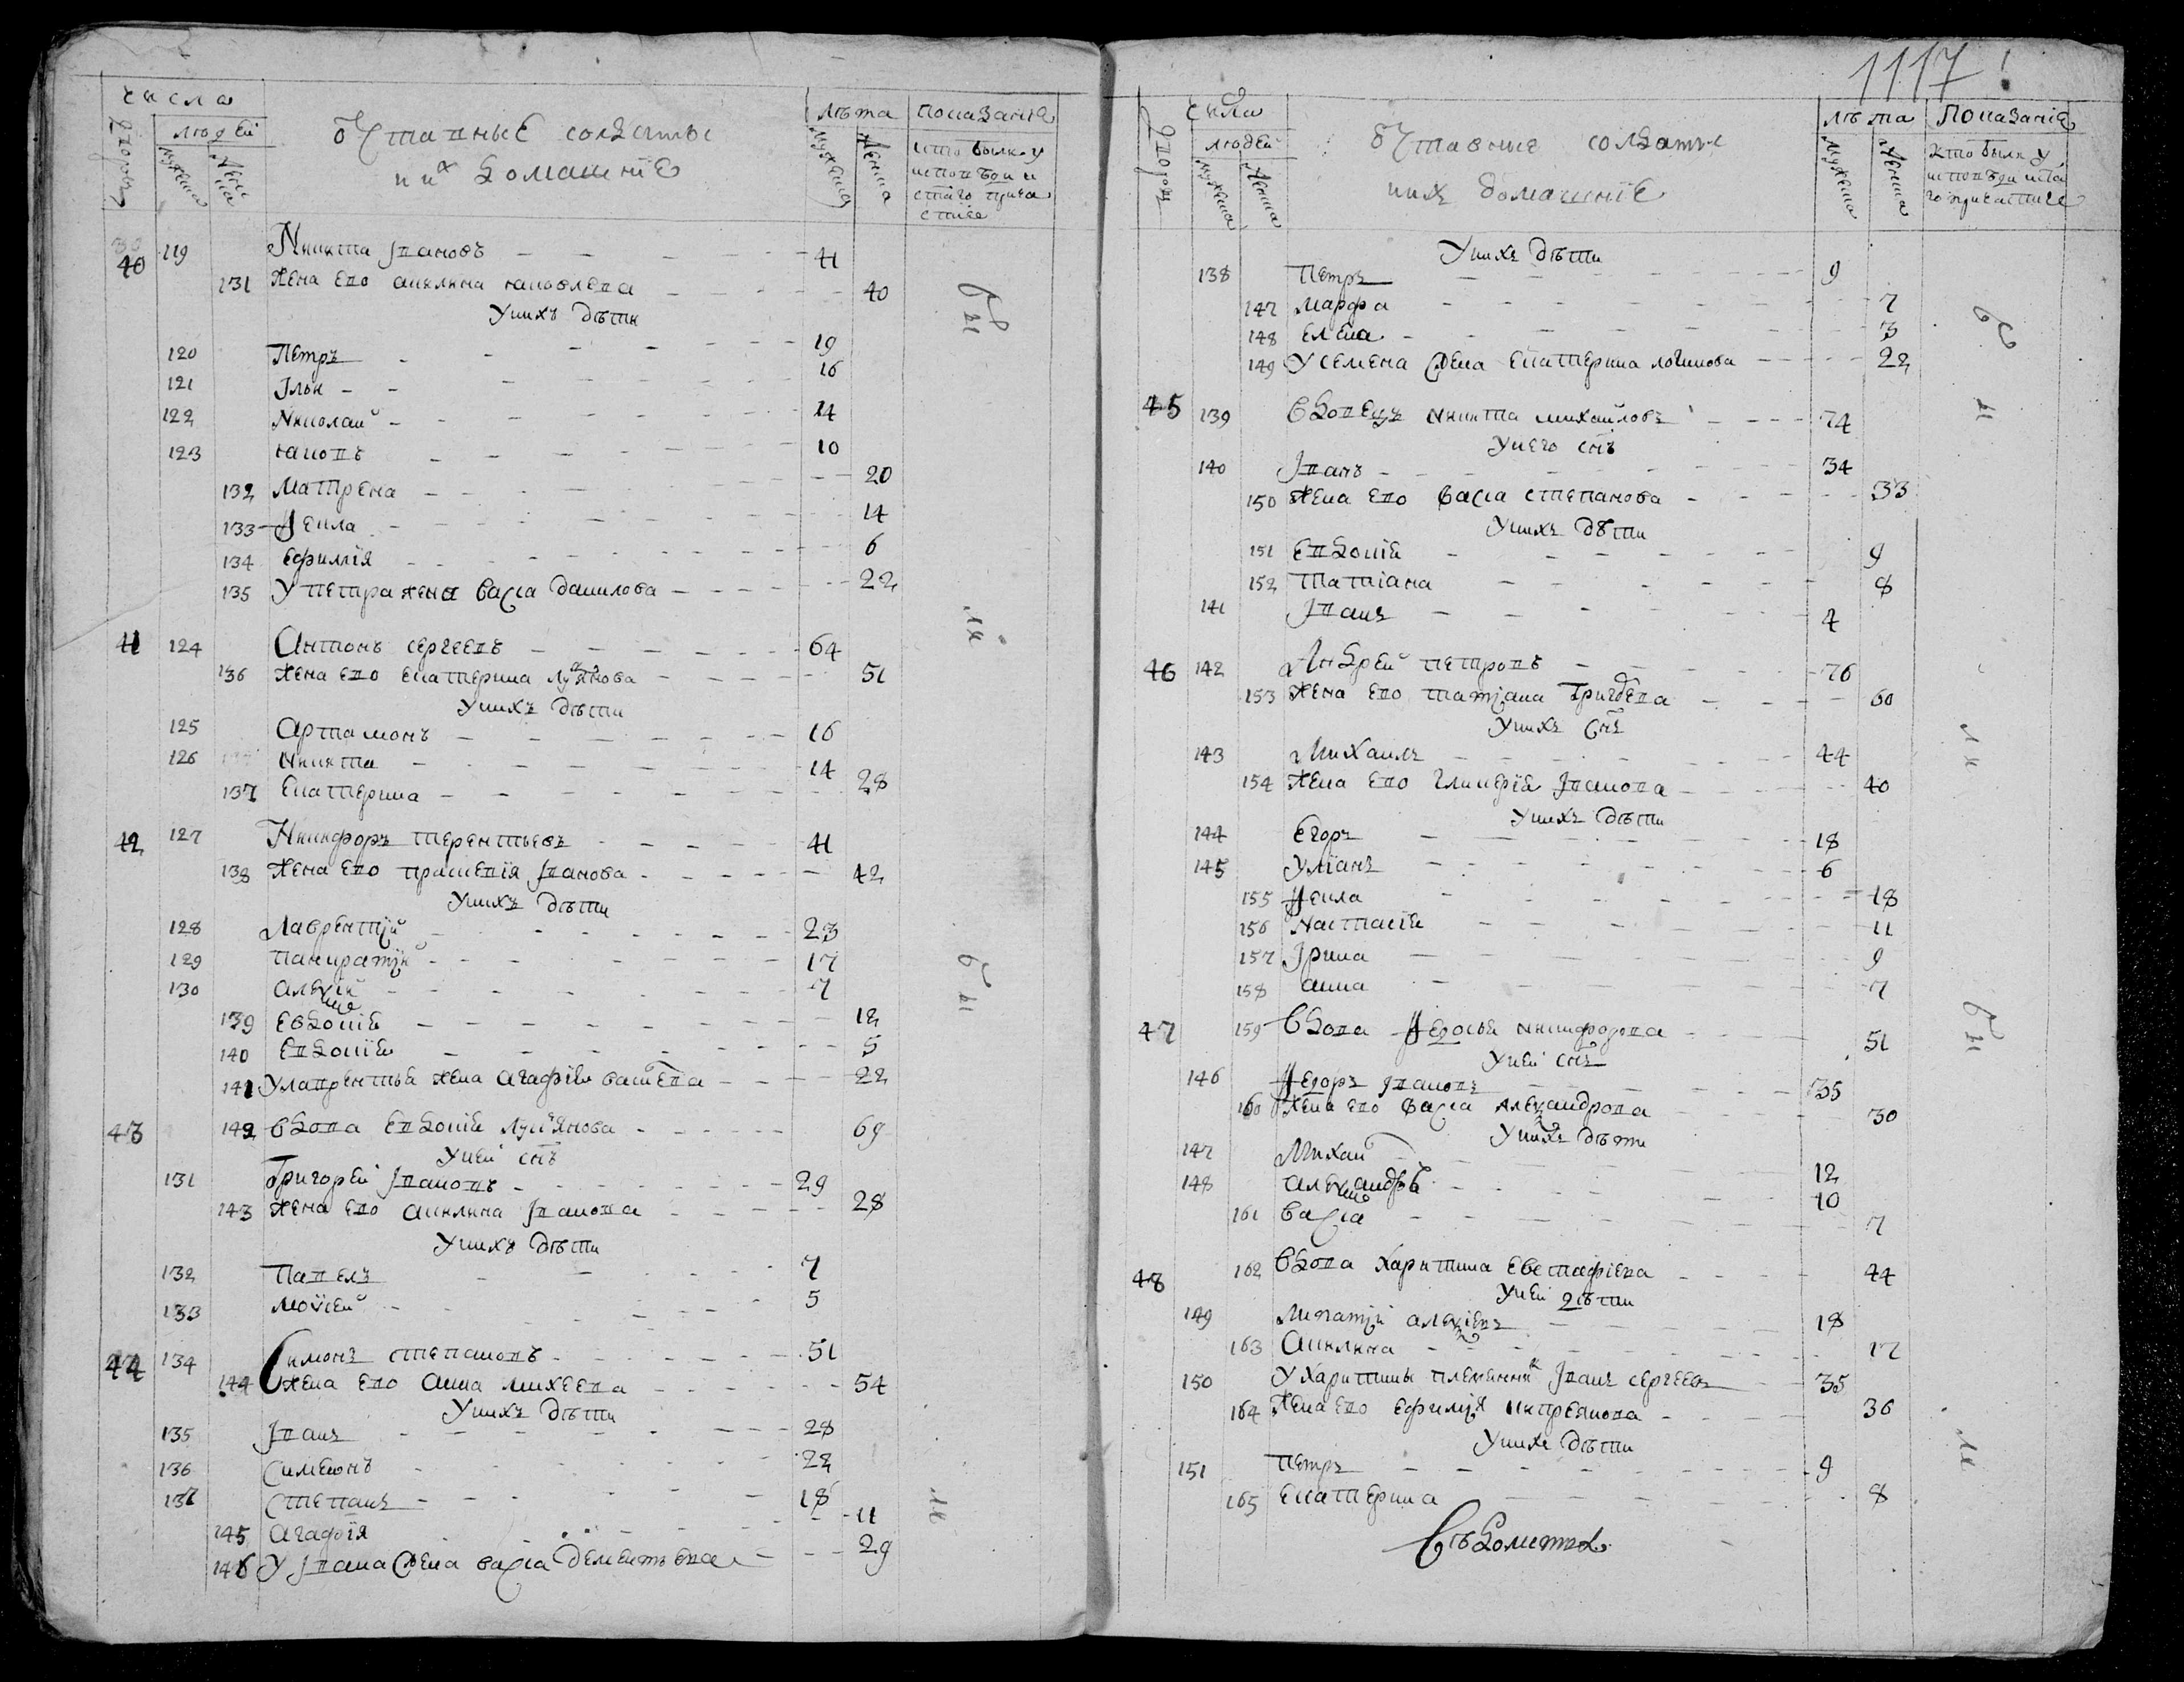 числа
людей
дворовъ
мужеска
женска
Отставные солдаты
и их домашніе
лѣта
мужеска
женска
показаніе
кто былъ у
исповѣди и
святаго прича
стія
40 119 Никита Ивановъ 41
131 Жена его Акилина Яковлева 40
У нихъ дѣти
120 Петръ 19
121 Илья 16
122 Николай 14
123 Яковъ 10
132 Матрена 20
133 Фекла 14
134 Ефимія 6
135 У Петра жена Васса Данилова 22
41 124 Антонъ Сергеевъ 64
136 Жена его Екатерина Лукянова 51
У нихъ дѣти
125 Артамонъ 16
126 Никита 14
137 Екатерина 28
42 127 Никифоръ Терентьевъ 41
138 Жена его Праскевія Иванова 42
У нихъ дѣти
128 Лаврентій 23
129 Панкратій 17
130 Алексій 7
139 Евдокія 12
140 Евдокія 5
141 У Лаврентья жена Агафія Васильева 22
43 142 Вдова Евдокія Лукьянова 69
У ней снъ
131 Григорей Ивановъ 29
143 Жена его Акилина Иванова 28
У нихъ дѣти
132 Павелъ 7
133 Моѵсей 5
44 134 Симонъ Степановъ 51
144 Жена его Анна Михеева 54
У нихъ дѣти
135 Иванъ 28
136 Симеонъ 22
137 Степанъ 18
145 Агафія 11
146 У Ивана жена Васса Дементьева 29
бы
ли
бы
ли
1117
числа
людей
дворовъ
мужеска
женска
Отставные солдаты
и ихъ домашніе
лѣта
мужеска
женска
Показаніе
кто былъ у
исповѣди и свѧ
го причастія
У нихъ дѣти
138 Петръ 9
147 Марфа 7
148 Елена 3
149 У Семена жена Екатерина Логинова 22
45 139 Вдовецъ Никита Михайловъ 74
У него снъ
140 Иванъ 34
150 Жена его Васса Степанова 33
У нихъ дѣти
151 Евдокія 9
152 Татіана 8
141 Иванъ 4
46 142 Андрей Петровъ 76
153 Жена его Татіана Григорева 60
У нихъ снъ
143 Михаилъ 44
154 Жена его Гликерія Иванова 40
У нихъ дѣти
144 Егоръ 18
145 Уліанъ 6
155 Фекла 18
156 Настасія 11
157 Ірина 9
158 Анна 7
47 159 Вдова Федосья Никифорова 51
У ней снъ
146 Федоръ Ивановъ 35
160 Жена его Васса Александрова 30
У нихъ дѣти
147 Михаи 12
148 Александръ 10
161 Васса 7
48 162 Вдова Харитина Евстафіева 44
У ней дѣти
149 Игнатій Алексіевъ 18
163 Акилина 17
150 У Харитины племянник Иванъ Сергеевъ 35
164 Жена его Ефимія Кипреянова 36
У нихъ дѣти
151 Петръ 9
165 Екатерина 8
бы
ли
бы
ли